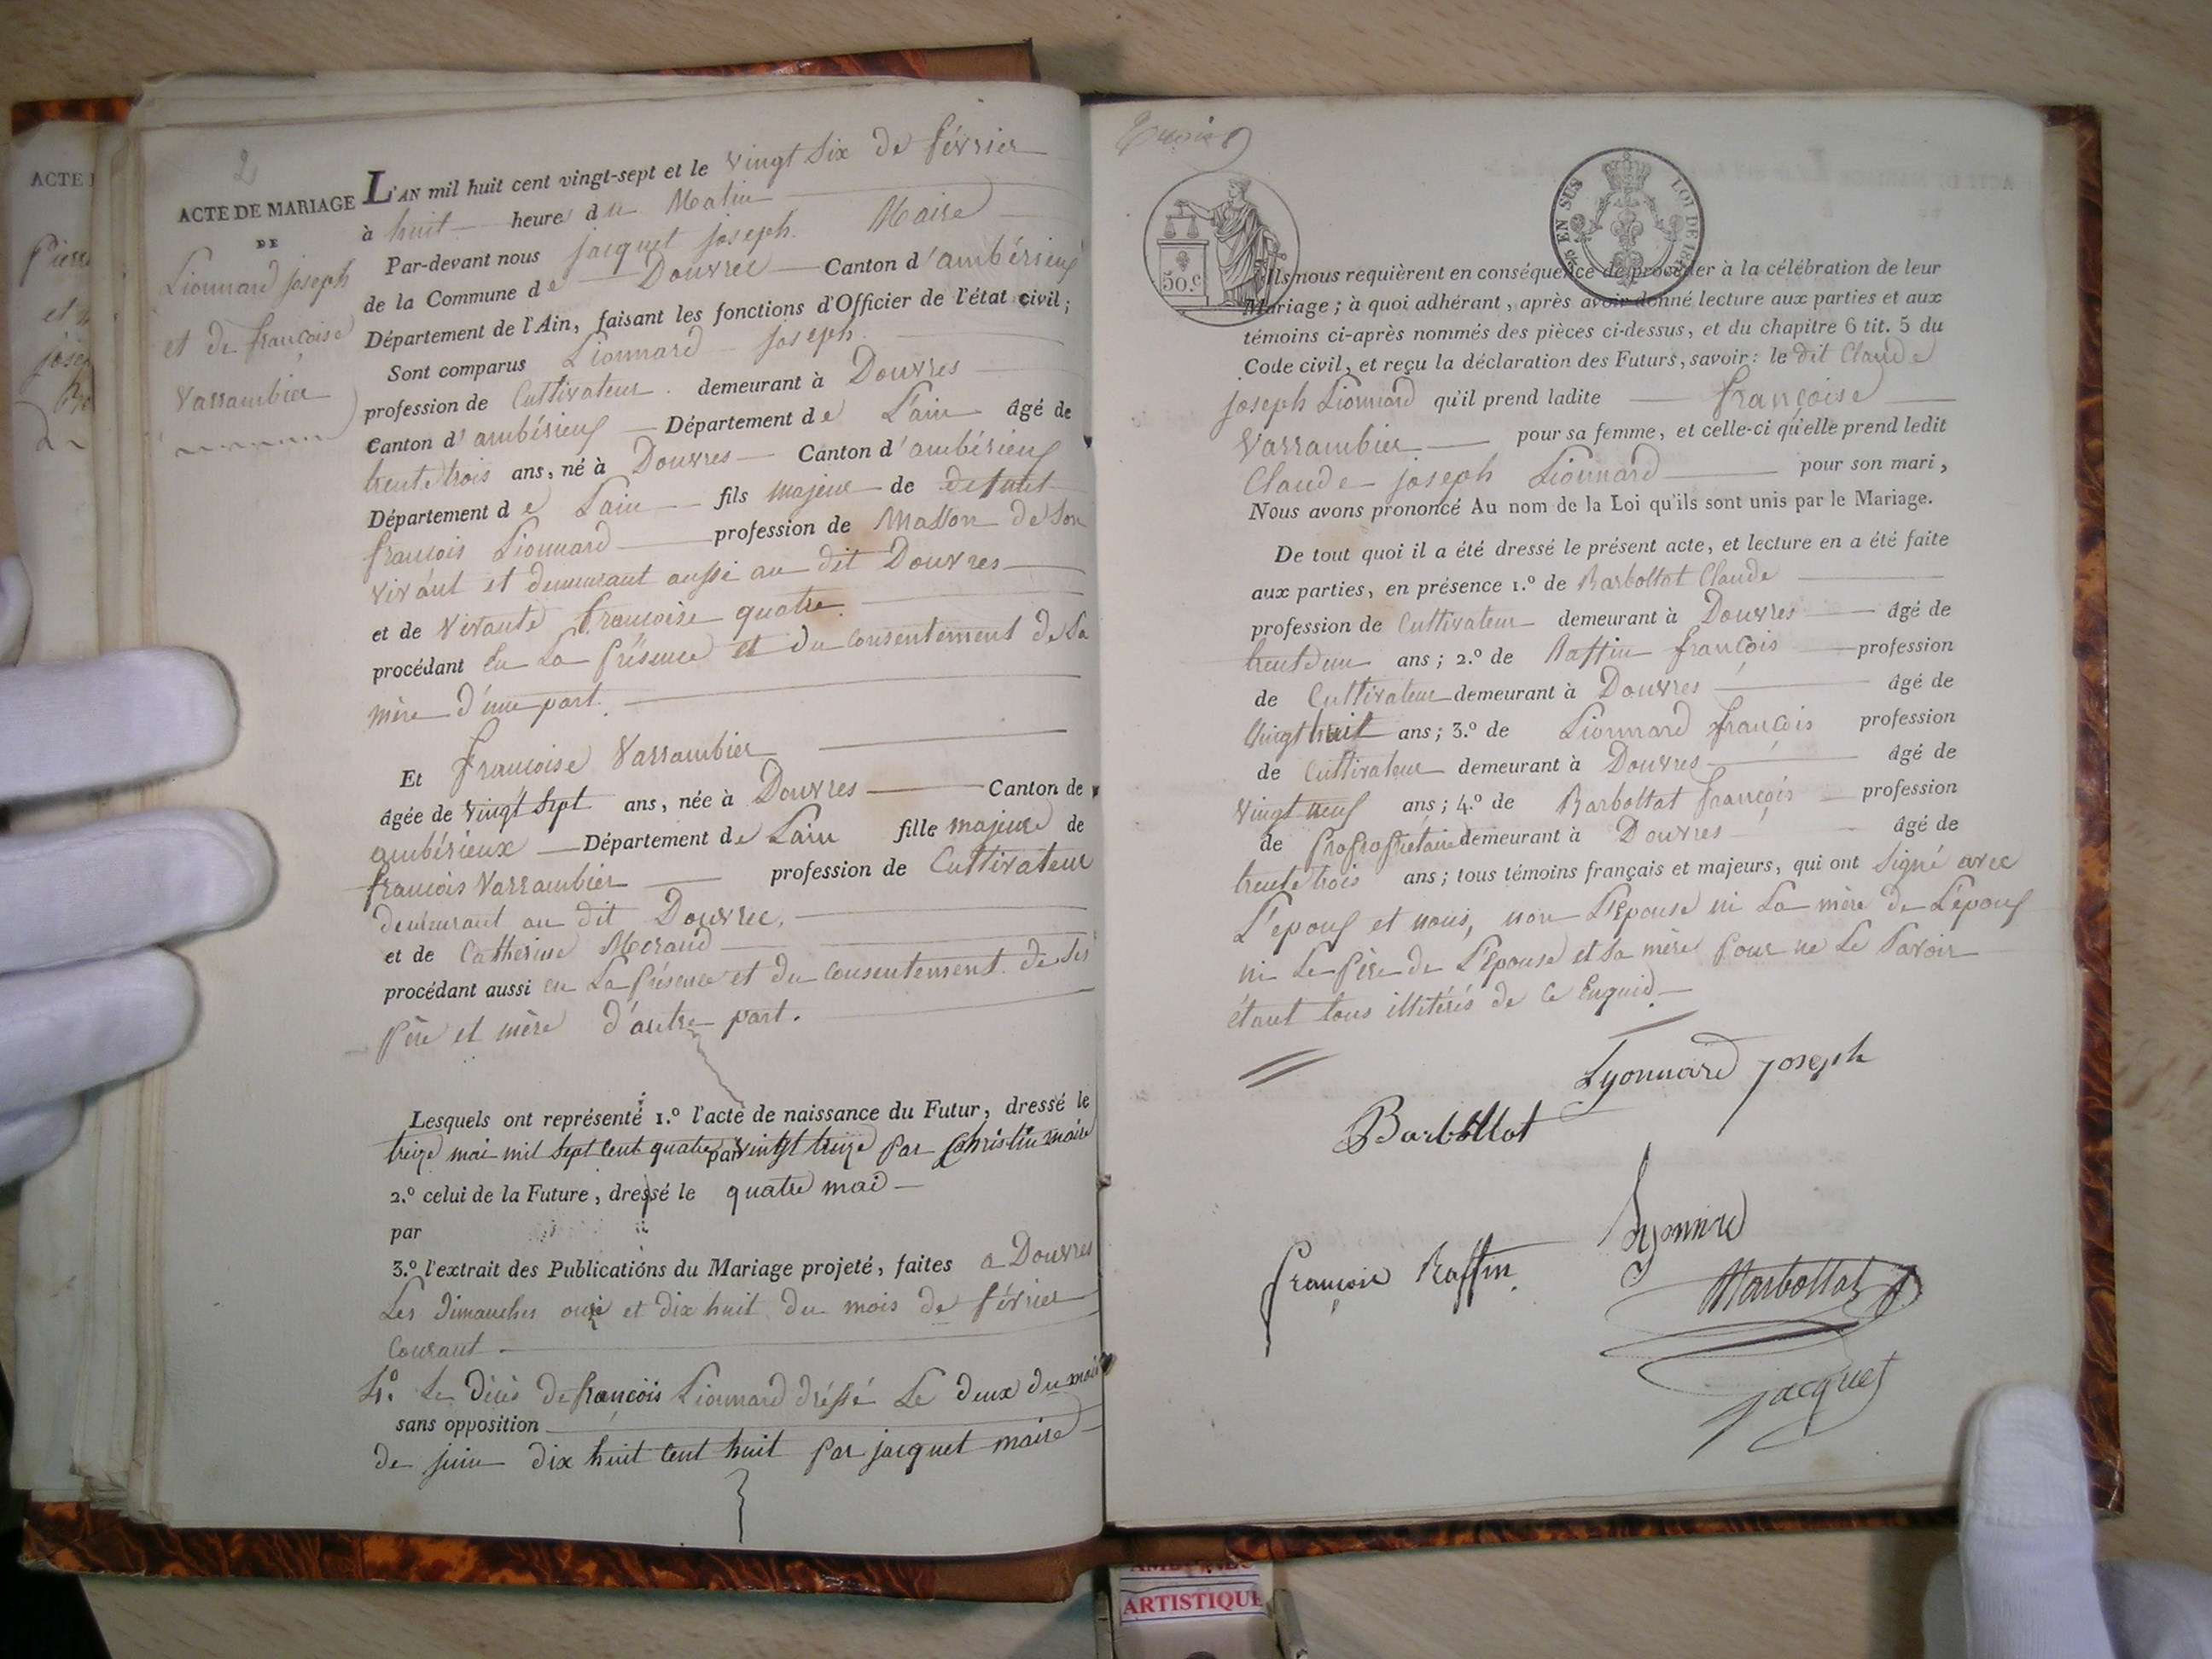 ACTE
Pierre
et
josep
2
ACTE DE MARIAGE
DE
Lionnard joseph
et de françoise
Varrambier
L'AN mil huit cent vingt-sept et le vingt Six de février
à huit heures du Matin
Par-devant nous jacquet joseph Maire
de la Commune de Douvrec Canton d'ambérieuf
Département de l'Ain, faisant les fonctions d'Officier de l'état civil;
Sont comparus Lionnard joseph
profession de Cultivateur demeurant à Douvres
Canton d'ambérieuf Département de L'ain âgé de
trente trois ans, né à Douvres Canton d'ambérieuf
Département de Lain fils majeur de defunt
françois Lionnard profession de Masson de Son
vivant et demeurant aussi au dit Douvres
et de vivante françoise quatre
procédant En La présence et du consentement de Sa
mère d'une part.
Et françoise Varrambier
âgée de vingt Sept ans, née à Douvres Canton de
ambérieux Département de Lain fille majeure de
françois Varrambier profession de Cultivateur
demeurant au dit Douvrec,
et de Catherine Morand
procédant aussi en La présence et du consentement de Ses
père et mère d'autre part.
Lesquels ont représenté 1.º l'acte de naissance du Futur, dressé le
treize mai mil Sept Cent quatre vingt treize par Christin maire
par
2.º celui de la Future, dressé le quatre mai
par
3.º l'extrait des Publications du Mariage projeté, faites a Douvres
Les Dimanches onze et dix huit du mois de février
Courant
4.º Le décès de françois Lionnard dréssé Le deux du mois
sans opposition
de juin dix huit Cent huit par jacquet maire
50 c
EN SUS LOI DE
Ils nous requièrent en conséquence de procéder à la célébration de leur
Mariage; à quoi adhérant, après avoir donné lecture aux parties et aux
témoins ci-après nommés des pièces ci-dessus, et du chapitre 6 tit. 5 du
Code civil, et reçu la déclaration des Futurs, savoir: le dit Claude
joseph Lionnard qu'il prend ladite françoise
Varrambier pour sa femme, et celle-ci qu'elle prend ledit
Claude joseph Lionnard pour son mari,
Nous avons prononcé Au nom de la Loi qu'ils sont unis par le Mariage.
De tout quoi il a été dressé le présent acte, et lecture en a été faite
aux parties, en présence 1.º de Barbollat Claude
profession de Cultivateur demeurant à Douvres âgé de
trente un ans; 2.º de Raffin françois profession
de Cultivateur demeurant à Douvres âgé de
Vingt huit ans; 3.º de Lionnard françois profession
de Cultivateur demeurant à Douvres âgé de
Vingt neuf ans; 4.º de Barbollat françois profession
de propropriétaire demeurant à Douvres âgé de
trente trois ans; tous témoins français et majeurs, qui ont Signé avec
L'epouf et nous, non L'Epouse ni La mère de L'épouf
ni Le père de L'Epouse et Sa mère pour ne Le Savoir
étant tous illitérés de Ce Enquid
Lyonnard joseph
Barbollat
françois Raffin
Lyonnard
Barbollat
jacquet
AMBIANCE
ARTISTIQUE